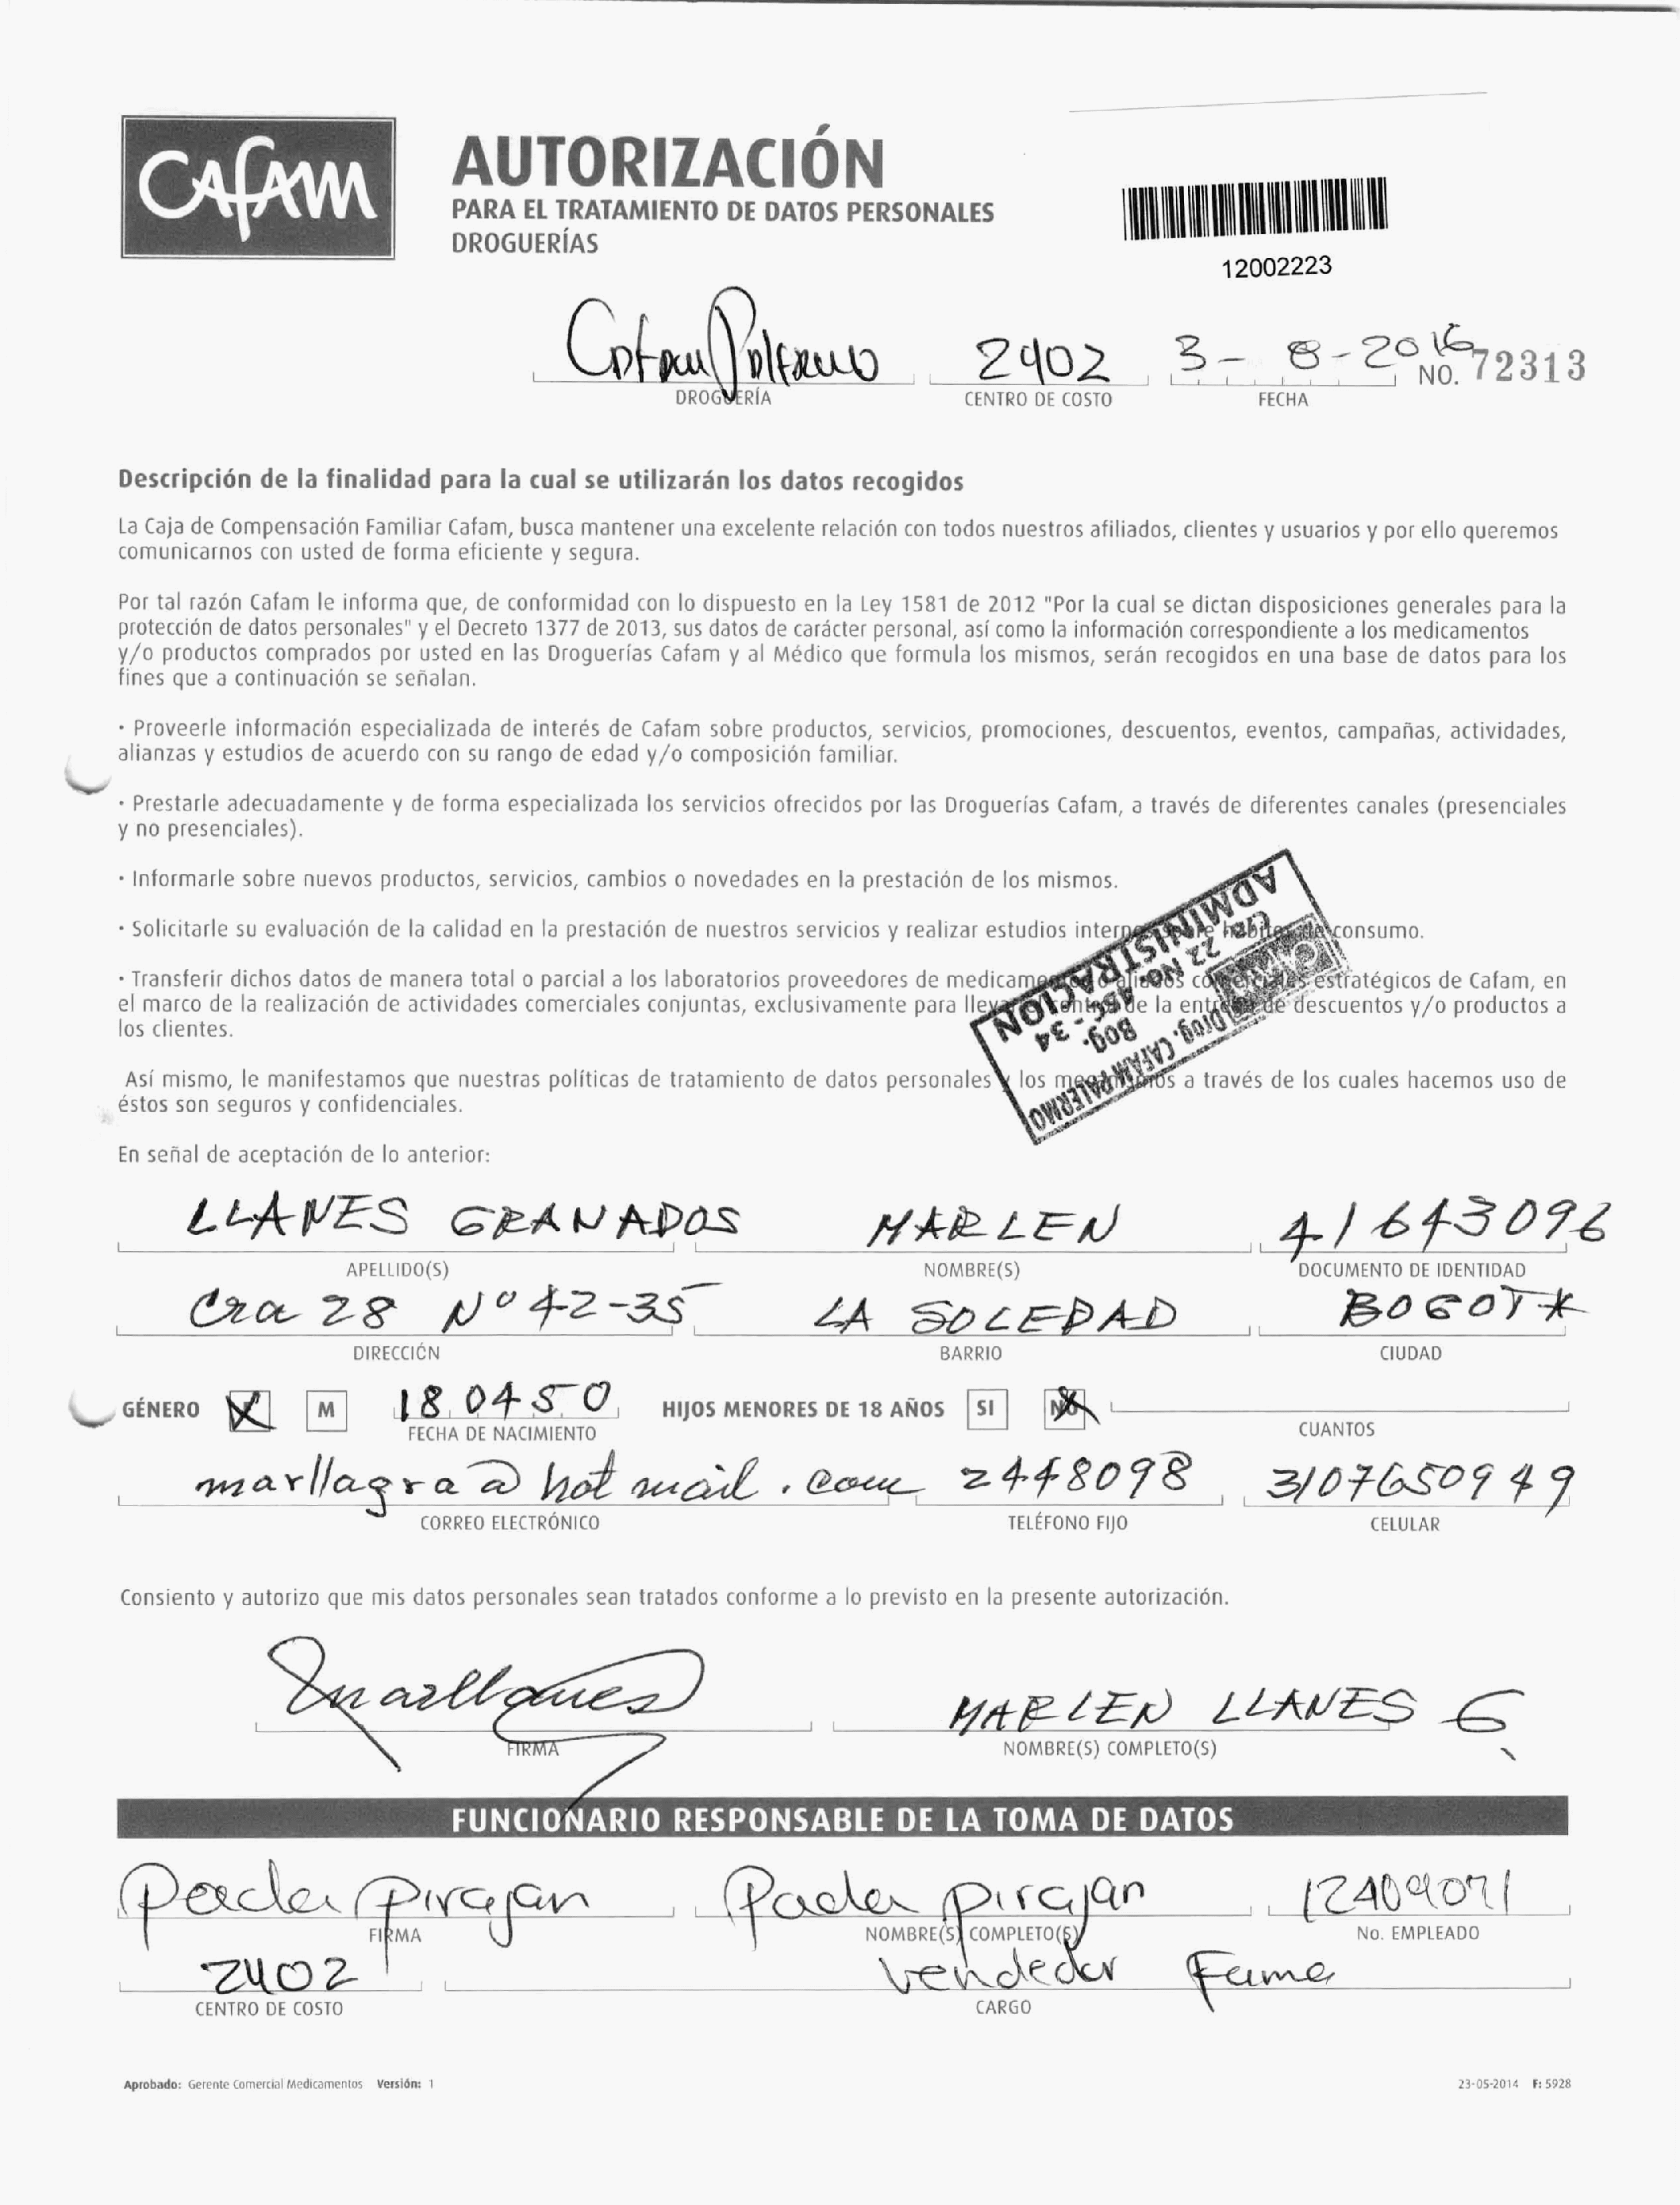 CAFAM
AUTORIZACIÓN
PARA EL TRATAMIENTO DE DATOS PERSONALES
DROGUERÍAS
12002223
Cafam Palermo 2402 3-8-2016 NO. 72313
DROGUERÍA CENTRO DE COSTO FECHA
Descripción de la finalidad para la cual se utilizarán los datos recogidos
La Caja de Compensación Familiar Cafam, busca mantener una excelente relación con todos nuestros afiliados, clientes y usuarios y por ello queremos
comunicarnos con usted de forma eficiente y segura.
Por tal razón Cafam le informa que, de conformidad con lo dispuesto en la Ley 1581 de 2012 "Por la cual se dictan disposiciones generales para la
protección de datos personales" y el Decreto 1377 de 2013, sus datos de carácter personal, así como la información correspondiente a los medicamentos
y/o productos comprados por usted en las Droguerías Cafam y al Médico que formula los mismos, serán recogidos en una base de datos para los
fines que a continuación se señalan.
· Proveerle información especializada de interés de Cafam sobre productos, servicios, promociones, descuentos, eventos, campañas, actividades,
alianzas y estudios de acuerdo con su rango de edad y/o composición familiar.
· Prestarle adecuadamente y de forma especializada los servicios ofrecidos por las Droguerías Cafam, a través de diferentes canales (presenciales
y no presenciales).
· Informarle sobre nuevos productos, servicios, cambios o novedades en la prestación de los mismos.
· Solicitarle su evaluación de la calidad en la prestación de nuestros servicios y realizar estudios internos sobre hábitos de consumo.
· Transferir dichos datos de manera total o parcial a los laboratorios proveedores de medicamentos o aliados comerciales estratégicos de Cafam, en
el marco de la realización de actividades comerciales conjuntas, exclusivamente para llevar el control de la entrega de descuentos y/o productos a
los clientes.
Así mismo, le manifestamos que nuestras políticas de tratamiento de datos personales y los mecanismos a través de los cuales hacemos uso de
éstos son seguros y confidenciales.
CAFAM Drog. CAFAM PALERMO
Bog.
ADMINISTRACION
En señal de aceptación de lo anterior:
LLANES GRANADOS MARLEN 41643096
APELLIDO(S) NOMBRE(S) DOCUMENTO DE IDENTIDAD
Cra 28 Nº 42-35 LA SOLEDAD BOGOTA
DIRECCIÓN BARRIO CIUDAD
GÉNERO M 180450 HIJOS MENORES DE 18 AÑOS SI NO
FECHA DE NACIMIENTO CUANTOS
marllagra@hotmail.com 2448098 3107650949
CORREO ELECTRÓNICO TELÉFONO FIJO CELULAR
Consiento y autorizo que mis datos personales sean tratados conforme a lo previsto en la presente autorización.
Marllanes MARLEN LLANES G.
FIRMA NOMBRE(S) COMPLETO(S)
FUNCIONARIO RESPONSABLE DE LA TOMA DE DATOS
pirajan pirajan 12409071
FIRMA NOMBRE(S) COMPLETO(S) No. EMPLEADO
2402 vendedor
CENTRO DE COSTO CARGO
Aprobado: Gerente Comercial Medicamentos Versión: 1 23-05-2014 F: 5928